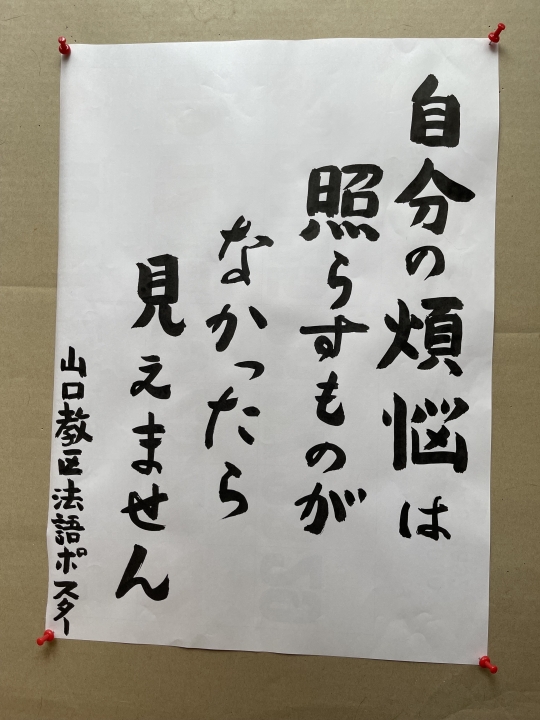 自分の煩悩は
照らすものが
なかったら
見えません
山口教区法語ポスター